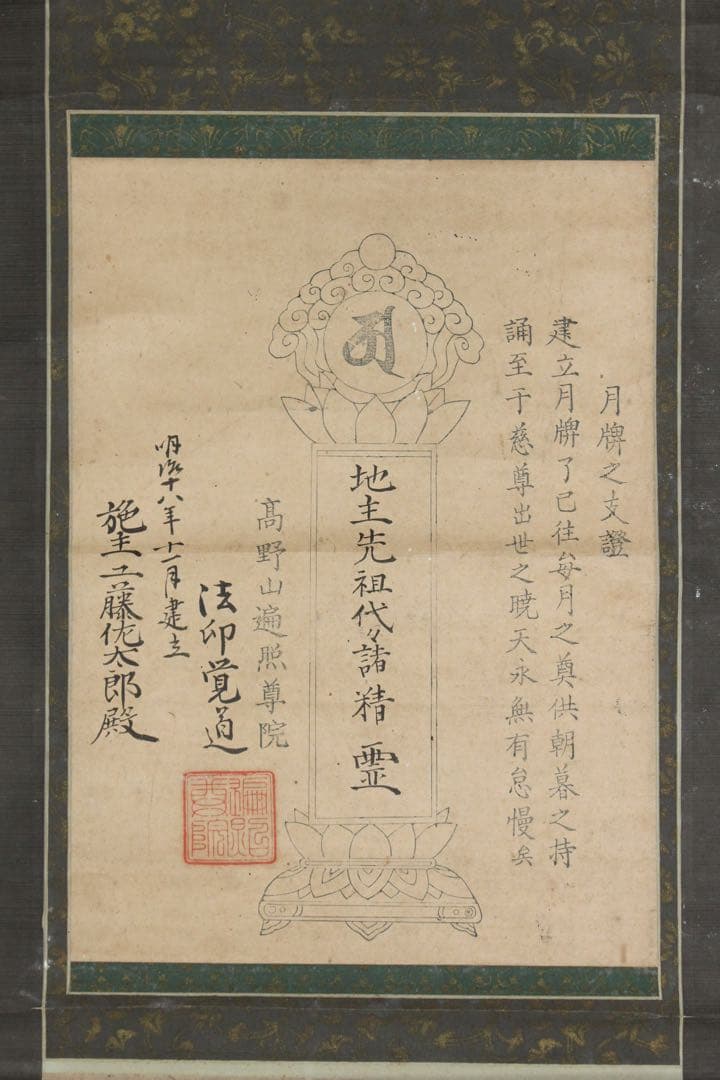 月牌之支證
建立月牌了已往每月之奠供朝暮之持
誦至于慈尊出世之曉天永無有怠慢矣
地主先祖代々諸精霊
髙野山遍照尊院
法印覚道
明治十八年十一月建立
施主工藤佐太郎殿
遍照尊院